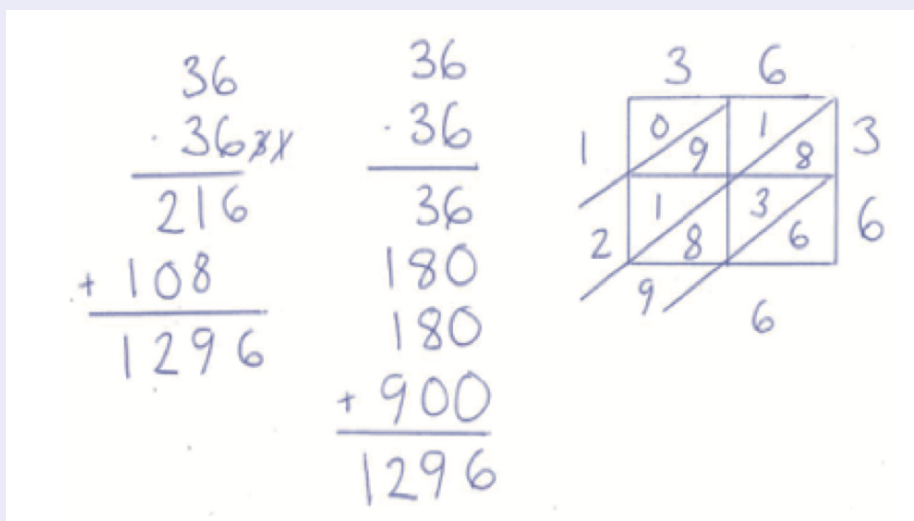 36
· 36
216
+ 108
1296
36
· 36
36
180
180
+ 900
1296
3 6
1 0 9 1 8 3
2 1 8 3 6 6
9 6